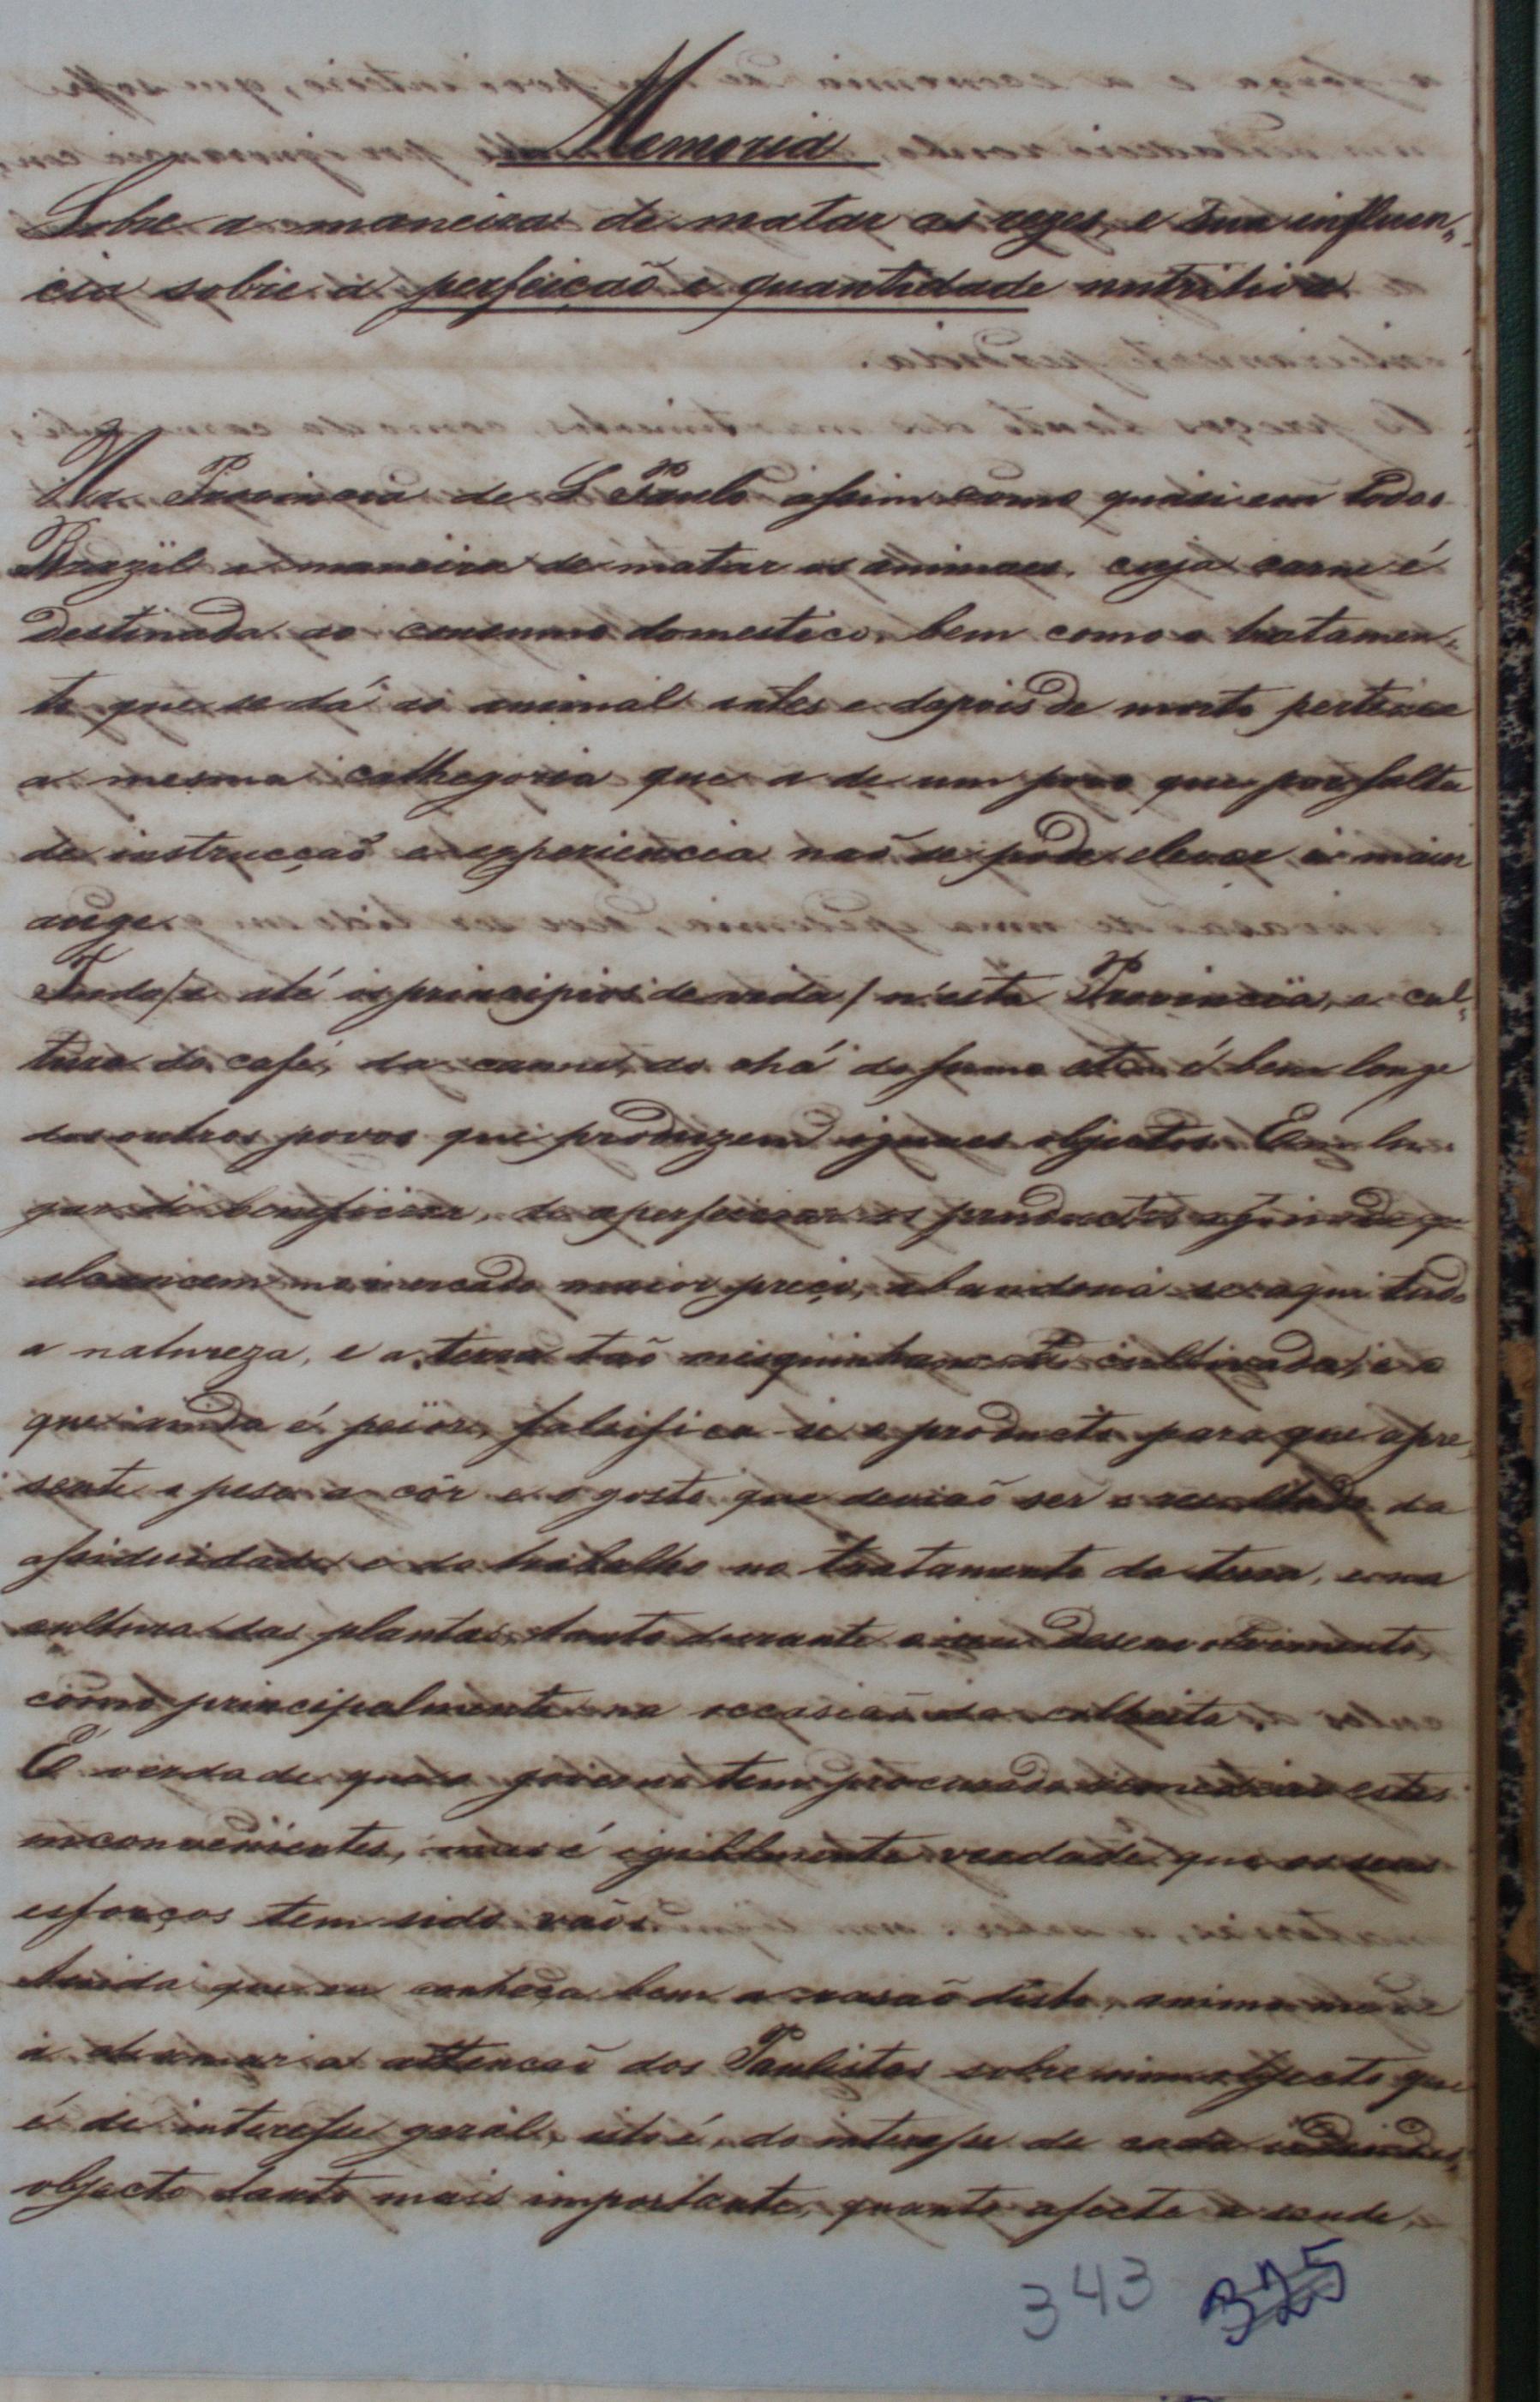 Memoria
Sobre a maneira de matar as rezes, e sua influen,,
cia sobre a perfeição e quantidade nutritiva
Na Provincia de S Paulo assim como quasi em todo o
Brazil a maneira de matar os animaes, cuja carne é
destinada ao consumo domestico, bem como o tratamen,,
to que se dá ao animal antes e depois de morto pertence
a mesma cathegoria que a de um povo que por falta
de instrucção e experiencia não se pode elevar a maior
auge.
Tudo / e até os principios de vida / n'esta Provincia, a cul,,
tura do café, da canna, do chá do fumo etc é bem longe
dos outros povos que produzem iguaes objectos. Em lu
gar de beneficiar, de aperfeiçoar os productos afim de q
alcancem no mercado maior preço, abandona-se aqui tudo
a natureza, e a terra tão mesquinhamente cultivada, e o
que ainda é peior, falsifica-se o producto para que apre,
sente o peso a côr e o gosto que devião ser o resultado da
assiduidade e do trabalho no tratamento da terra, e na
cultura das plantas, tanto durante o seu desenvolvimento,
como principalmente na occasião da colheita.
É verdade que o governo tem procurado remediar estes
inconvenientes, mas é igualmente verdade que os seus
esforços tem sido vãos.
Ainda que eu conheça bem a rasão disto, animo-me
a chamar a attenção dos Paulistas sobre um objecto que
é de interesse geral, isto é, do interesse de cada individuo,
objecto tanto mais importante, quanto afecta a saude,
343 325